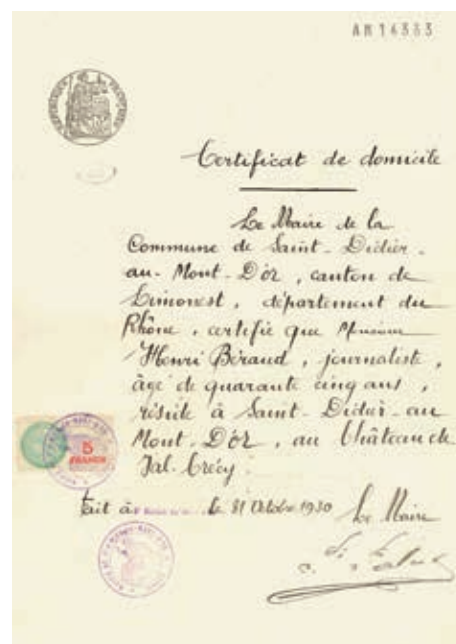 AM 14333
RÉPUBLIQUE FRANÇAISE
Certificat de domicile
Le Maire de la
Commune de Saint-Didier-
au-Mont-D'Or, canton de
Limonest, département du
Rhône, certifie que Monsieur
Henri Béraud, journaliste,
âgé de quarante cinq ans,
réside à Saint-Didier-au
Mont-D'Or, au Château de
Val-Crécy.
5
FRANCS
Fait à le 31 Octobre 1930 Le Maire